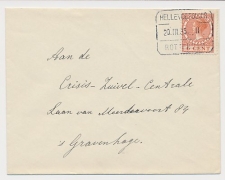 HELLEVOETSLUIS
20.III.35
6 CENT
Aan de
Crisis-Zuivel-Centrale
Laan van Meerdervoort 84
's Gravenhage.